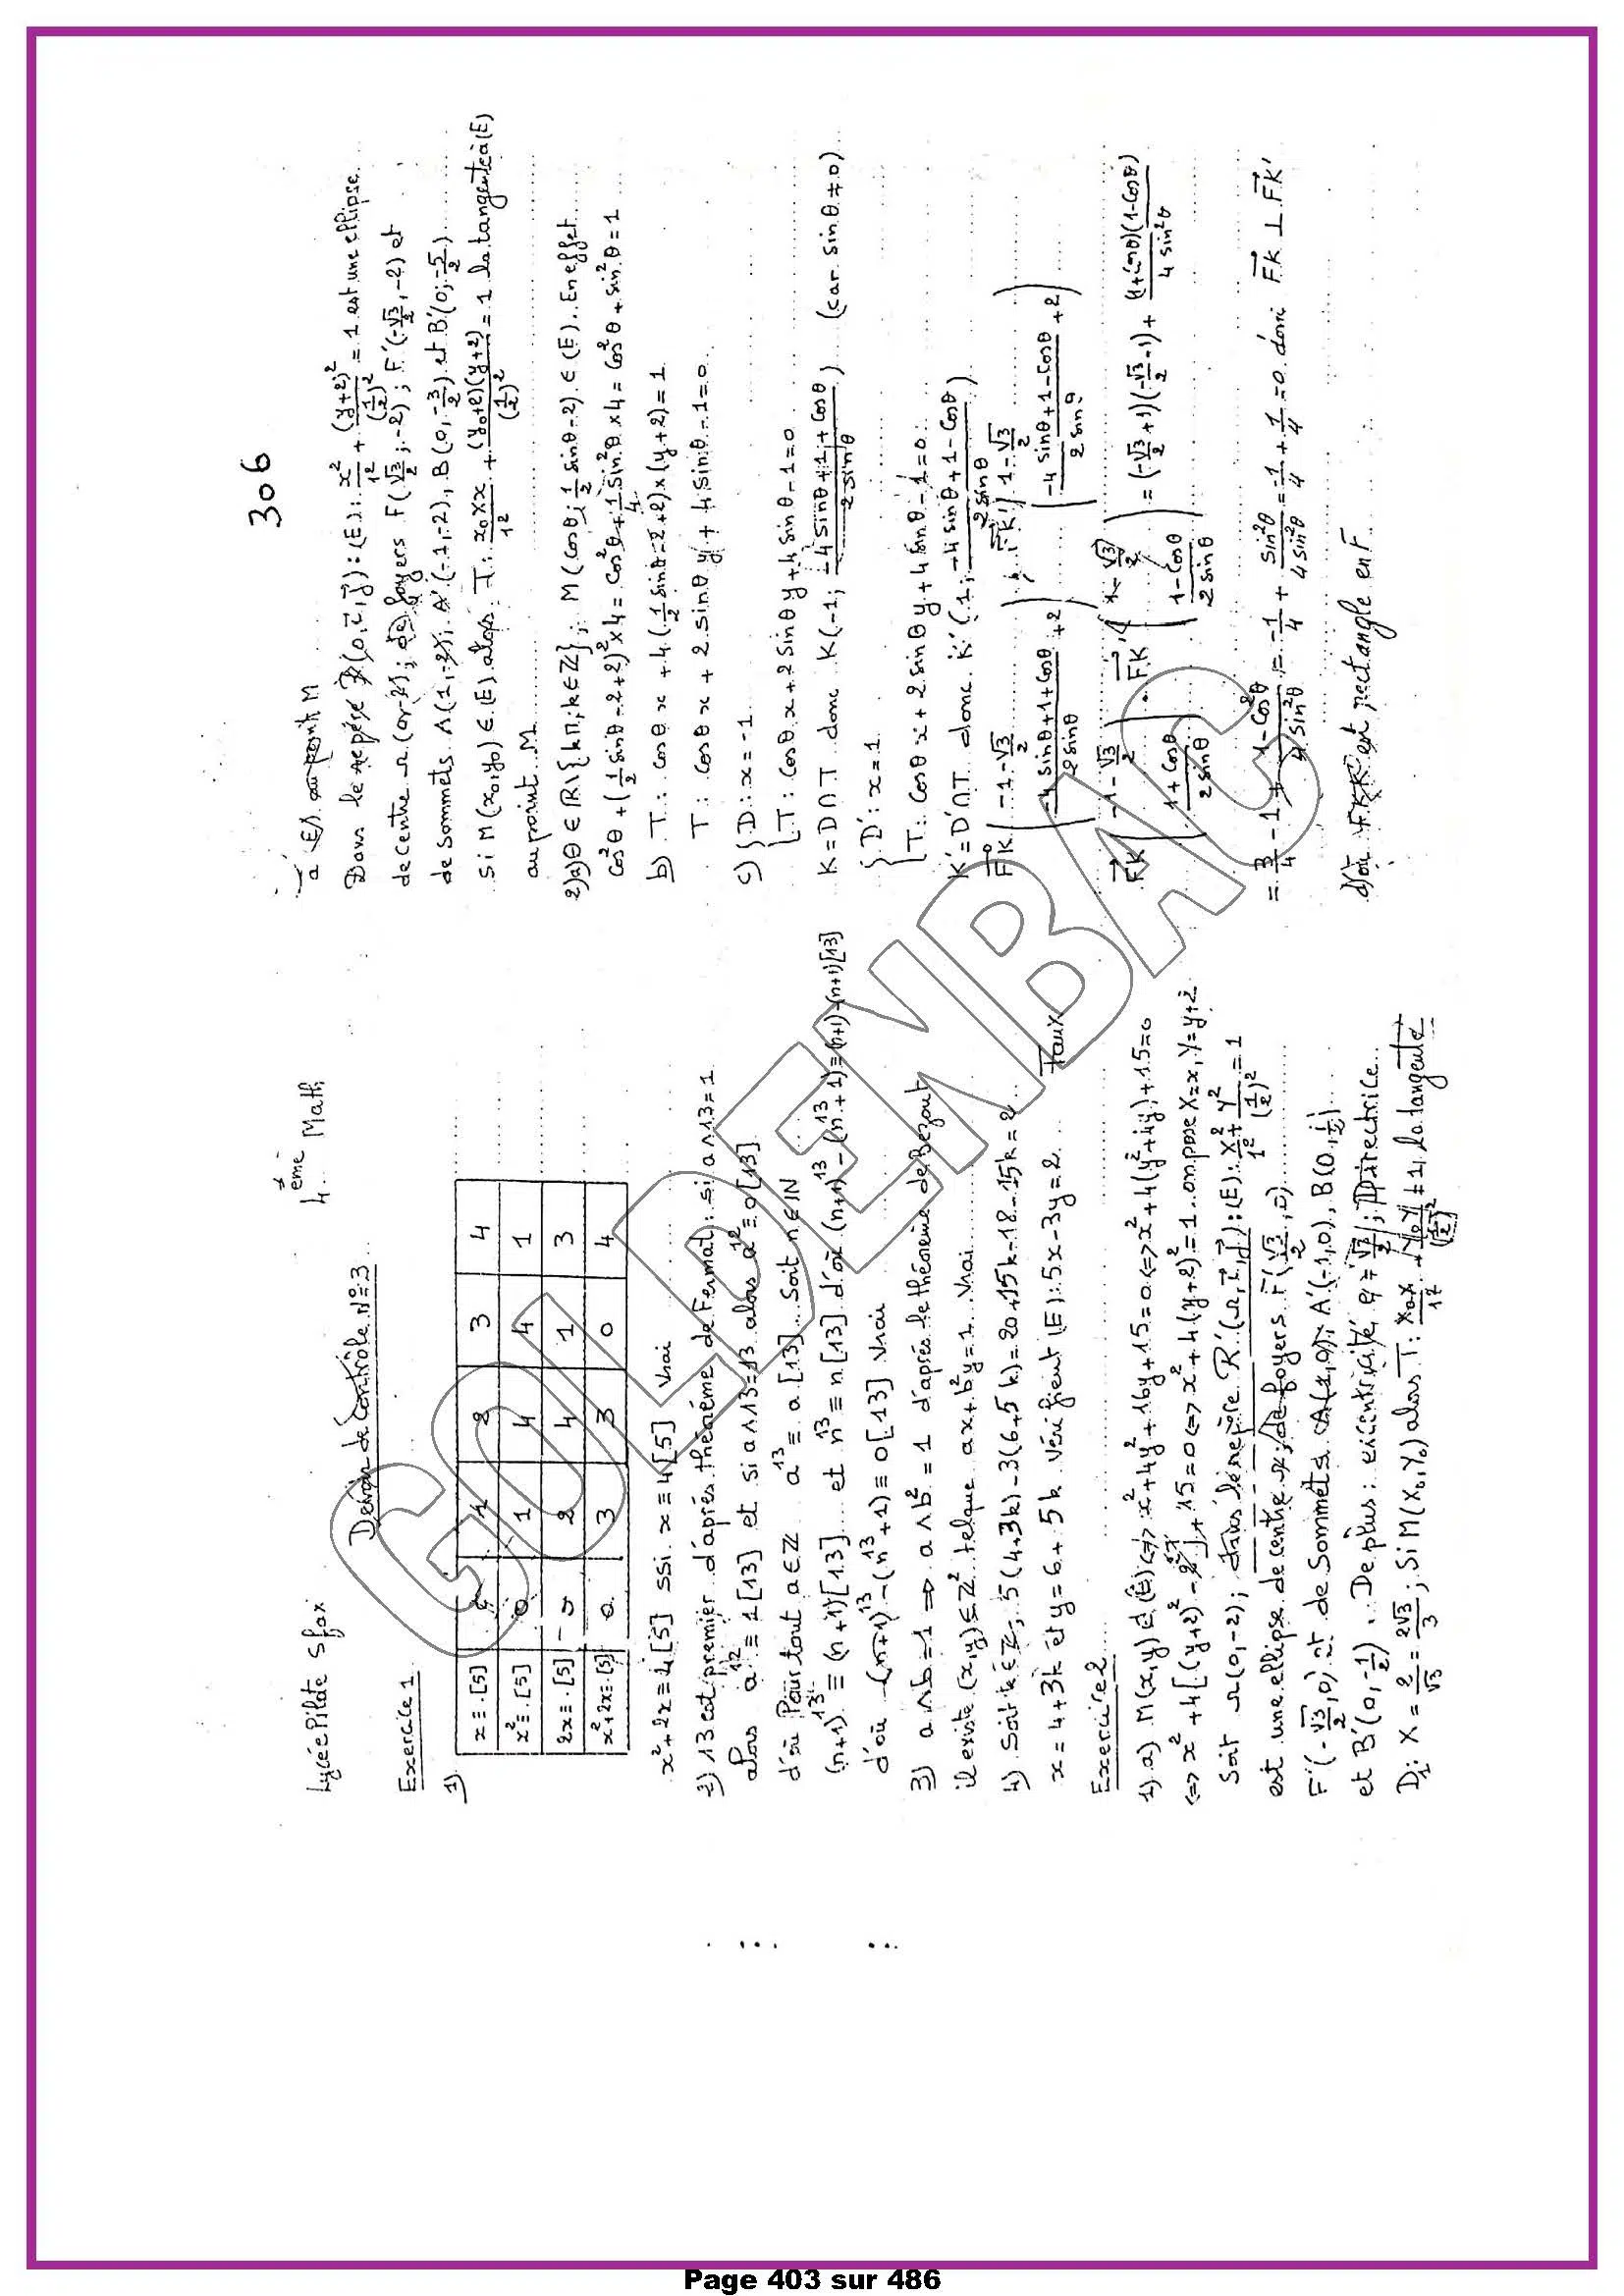 306
Lycée Pilote Sfax
4ème Math
Devoir de Contrôle n°=3
Exercice 1
1)
x ≡ .[5] 0 1 2 3 4
x² ≡ .[5] 0 1 4 4 1
2x ≡ .[5] 0 2 4 1 3
x²+2x ≡ .[5] 0 3 3 0 4
x²+2x ≡ 4[5] ssi x ≡ 4[5] Vrai
2) 13 est premier d'après théorème de Fermat : si a∧13=1
alors a¹² ≡ 1[13] et si a∧13=13 alors a ≡ 0[13]
d'où Pour tout a∈ℤ a¹³ ≡ a[13] Soit n∈ℕ
(n+1)¹³ ≡ (n+1)[13] et n¹³ ≡ n[13] d'où (n+1)¹³-(n¹³+1) ≡ (n+1)-(n+1)[13]
d'où (n+1)¹³-(n¹³+1) ≡ 0[13] Vrai
3) a∧b=1 ⇒ a∧b²=1 d'après le théorème de Bezout
il existe (x,y)∈ℤ² telque ax+b²y=1 Vrai
4) Soit k∈ℤ, 5(4+3k)-3(6+5k)=20+15k-18-15k=2
x=4+3k et y=6+5k vérifient (E):5x-3y=2 Faux
Exercice 2
1) a) M(x,y)∈(E)⇔x²+4y²+16y+15=0⇔x²+4(y²+4y)+15=0
⇔x²+4[(y+2)²-4]+15=0⇔x²+4(y+2)²=1 on pose X=x, Y=y+2
Soit Ω(0,-2); dans le repère R'(Ω,i,j):(E): X²/1²+Y²/(1/2)²=1
est une ellipse de centre Ω; de foyers F(√3/2,0)
F'(-√3/2,0) et de Sommets A(1,0), A'(-1,0), B(0,1/2)
et B'(0,-1/2). De plus: excentricité e=√3/2; Directrice
D₁: X=2/√3=2√3/3; Si M(X₀,Y₀) alors T: X₀X/1²+Y₀Y/(1/2)²=1 la tangente
à (E) au point M
Dans le repère R(o,i,j):(E): x²/1²+(y+2)²/(1/2)²=1 est une ellipse
de centre Ω(0,-2); de foyers F(√3/2,-2); F'(-√3/2,-2) et
de Sommets A(1,-2), A'(-1,-2), B(0,-3/2) et B'(0;-5/2)
Si M(x₀,y₀)∈(E) alors T: x₀×x/1²+(y₀+2)(y+2)/(1/2)²=1 la tangente à (E)
au point M
2)a) θ∈ℝ\{kπ;k∈ℤ}; M(cosθ;1/2 sinθ-2)∈(E). En effet
cos²θ+(1/2 sinθ-2+2)²×4=cos²θ+1/4 sin²θ×4=cos²θ+sin²θ=1
b) T: cosθ x+4(1/2 sinθ-2+2)×(y+2)=1
T: cosθ x+2sinθ y+4sinθ-1=0
c) {D: x=-1
{T: cosθ x+2sinθ y+4sinθ-1=0
K=D∩T donc K(-1; (-4sinθ+1+cosθ)/(2sinθ)) (car sinθ≠0)
{D': x=1
{T: cosθ x+2sinθ y+4sinθ-1=0
K'=D'∩T donc K'(1; (-4sinθ+1-cosθ)/(2sinθ))
FK(-1-√3/2 ; (-4sinθ+1+cosθ)/(2sinθ)+2), FK'(1-√3/2 ; (-4sinθ+1-cosθ)/(2sinθ)+2)
FK(-1-√3/2 ; (1+cosθ)/(2sinθ)) . FK'(1-√3/2 ; (1-cosθ)/(2sinθ)) = (-√3/2+1)(-√3/2-1)+(1+cosθ)(1-cosθ)/(4sin²θ)
=3/4-1+(1-cos²θ)/(4sin²θ)=-1/4+sin²θ/(4sin²θ)=-1/4+1/4=0 donc FK ⊥ FK'
d'où FKK' est rectangle en F
GOLDENBAC
Page 403 sur 486